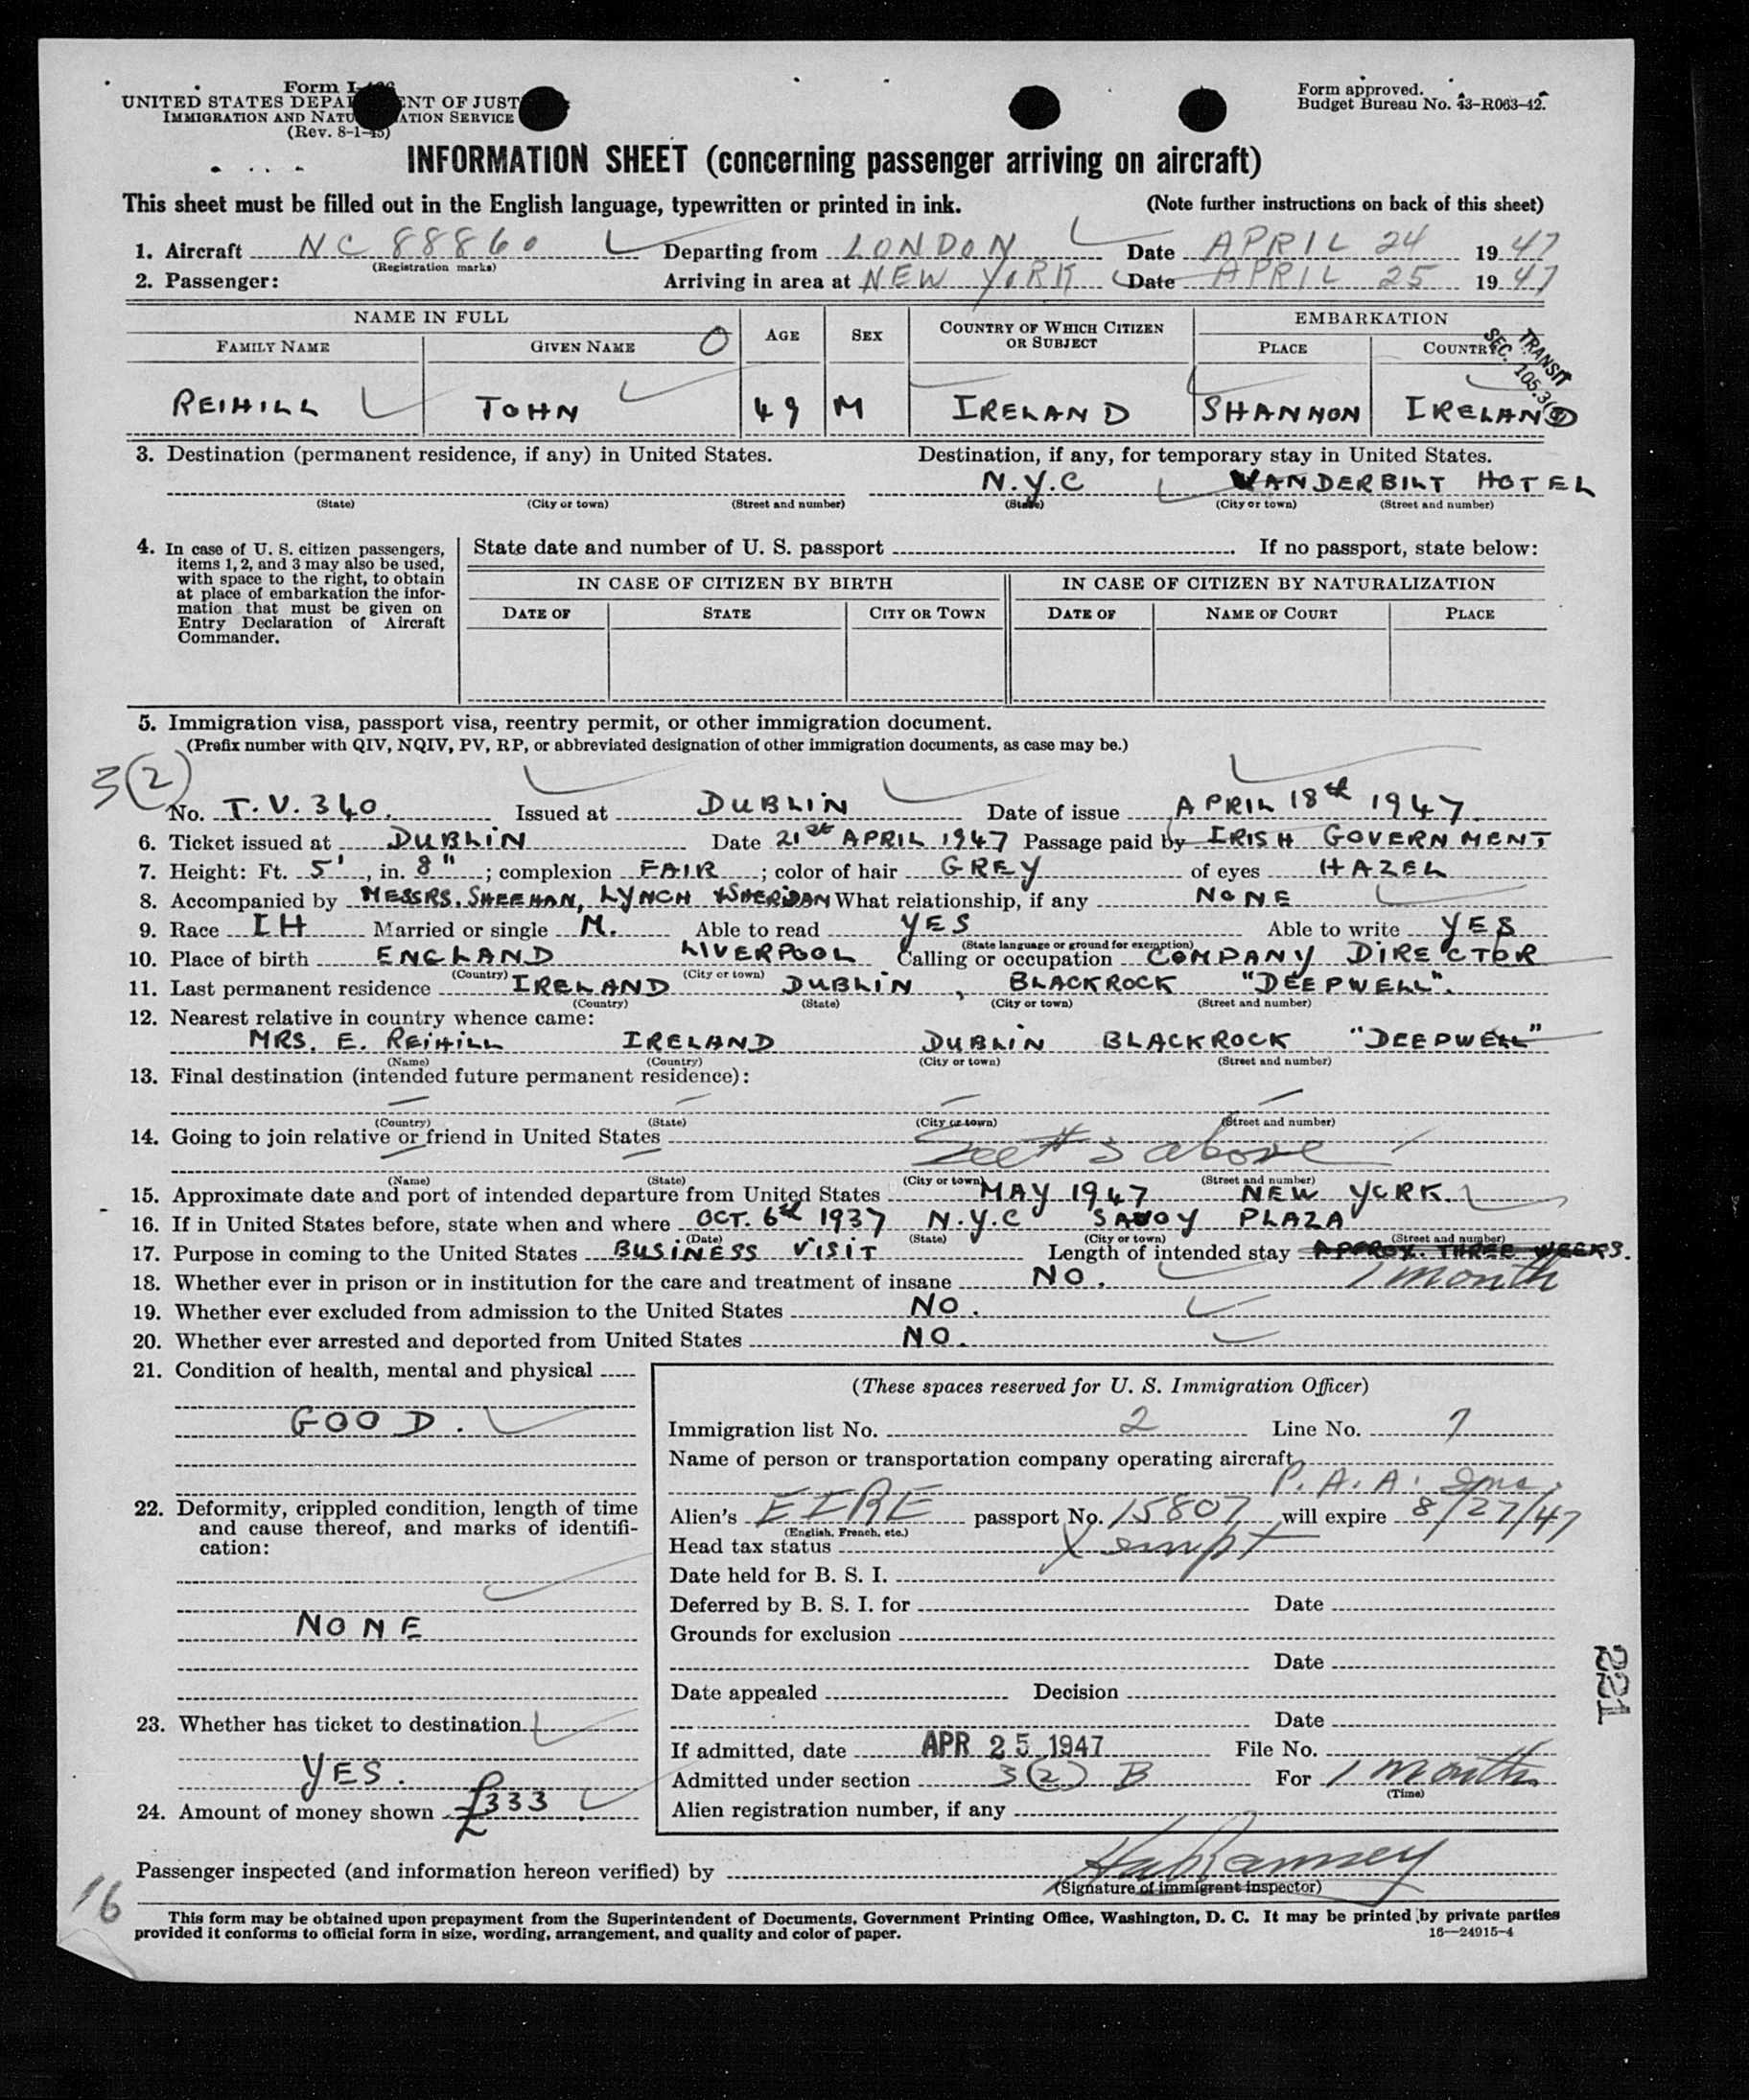 Form I-
UNITED STATES DEPA ENT OF JUST
IMMIGRATION AND NATU ATION SERVICE
(Rev. 8-1-45)
Form approved.
Budget Bureau No. 43-R063-42.
INFORMATION SHEET (concerning passenger arriving on aircraft)
This sheet must be filled out in the English language, typewritten or printed in ink. (Note further instructions on back of this sheet)
1. Aircraft NC 88860 Departing from LONDON Date APRIL 24 1947
(Registration marks)
2. Passenger: Arriving in area at NEW YORK Date APRIL 25 1947
NAME IN FULL AGE SEX COUNTRY OF WHICH CITIZEN OR SUBJECT EMBARKATION
FAMILY NAME GIVEN NAME O PLACE COUNTRY
TRANSIT
SEC. 105.3(
REIHILL JOHN 49 M IRELAND SHANNON IRELAND
3. Destination (permanent residence, if any) in United States. Destination, if any, for temporary stay in United States.
N.Y.C VANDERBILT HOTEL
(State) (City or town) (Street and number) (State) (City or town) (Street and number)
4. In case of U. S. citizen passengers,
items 1, 2, and 3 may also be used,
with space to the right, to obtain
at place of embarkation the infor-
mation that must be given on
Entry Declaration of Aircraft
Commander.
State date and number of U. S. passport . If no passport, state below:
IN CASE OF CITIZEN BY BIRTH IN CASE OF CITIZEN BY NATURALIZATION
DATE OF STATE CITY OR TOWN DATE OF NAME OF COURT PLACE
5. Immigration visa, passport visa, reentry permit, or other immigration document.
(Prefix number with QIV, NQIV, PV, RP, or abbreviated designation of other immigration documents, as case may be.)
3(2)
No. T.V. 340. Issued at DUBLIN Date of issue APRIL 18th 1947.
6. Ticket issued at DUBLIN Date 21st APRIL 1947 Passage paid by IRISH GOVERNMENT
7. Height: Ft. 5', in. 8"; complexion FAIR; color of hair GREY of eyes HAZEL
8. Accompanied by MESSRS. SHEEHAN, LYNCH & SHERIDAN What relationship, if any NONE
9. Race IH Married or single M. Able to read YES Able to write YES
(State language or ground for exemption)
10. Place of birth ENGLAND LIVERPOOL Calling or occupation COMPANY DIRECTOR
(Country) (City or town)
11. Last permanent residence IRELAND DUBLIN, BLACKROCK "DEEPWELL".
(Country) (State) (City or town) (Street and number)
12. Nearest relative in country whence came:
MRS. E. REIHILL IRELAND DUBLIN BLACKROCK "DEEPWELL"
(Name) (Country) (City or town) (Street and number)
13. Final destination (intended future permanent residence):
— — — —
(Country) (State) (City or town) (Street and number)
14. Going to join relative or friend in United States
See # 3 above
(Name) (State) (City or town) (Street and number)
15. Approximate date and port of intended departure from United States MAY 1947 NEW YORK.
16. If in United States before, state when and where OCT. 6th 1937 N.Y.C SAVOY PLAZA
(Date) (State) (City or town) (Street and number)
17. Purpose in coming to the United States BUSINESS VISIT Length of intended stay APPROX. THREE WEEKS.
1 month
18. Whether ever in prison or in institution for the care and treatment of insane NO.
19. Whether ever excluded from admission to the United States NO.
20. Whether ever arrested and deported from United States NO.
21. Condition of health, mental and physical
GOOD.
22. Deformity, crippled condition, length of time
and cause thereof, and marks of identifi-
cation:
NONE
23. Whether has ticket to destination
YES.
24. Amount of money shown £333
(These spaces reserved for U. S. Immigration Officer)
Immigration list No. 2 Line No. 7
Name of person or transportation company operating aircraft
P.A.A. Inc.
Alien's EIRE passport No. 15807 will expire 8/27/47
(English, French, etc.)
Head tax status Xempt
Date held for B. S. I.
Deferred by B. S. I. for Date
Grounds for exclusion
Date
Date appealed Decision
Date
If admitted, date APR 25 1947 File No.
Admitted under section 3(2) B For 1 Month
(Time)
Alien registration number, if any
221
Passenger inspected (and information hereon verified) by
(Signature of immigrant inspector)
16
This form may be obtained upon prepayment from the Superintendent of Documents, Government Printing Office, Washington, D. C. It may be printed by private parties
provided it conforms to official form in size, wording, arrangement, and quality and color of paper. 16—24915-4